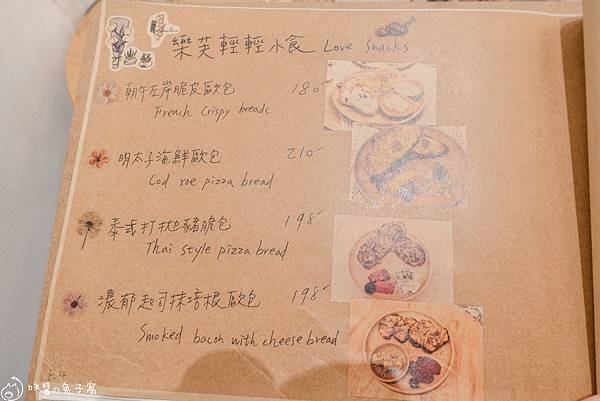 樂芙輕輕小食 Love Snacks
朝午左岸脆皮歐包 180
French Crispy breads
明太子海鮮歐包 210
Cod roe pizza bread
泰式打拋豬脆包 198
Thai style pizza bread
濃郁起司抹培根歐包 198
Smoked bacon with cheese bread
咪醬の兔子窩